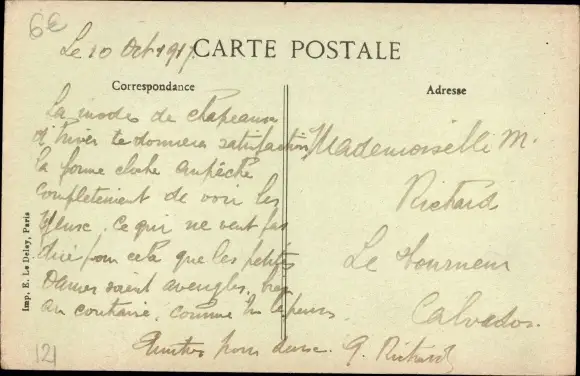 6€
Le 10 Oct 1917
CARTE POSTALE
Correspondance
Adresse
La modes de chapeaux
d'hiver te donnera satisfaction
la forme cloche empêche
complètement de voir les
yeux. Ce qui ne veut pas
dire pour cela que les petites
Dames soient aveugles, bien
au contraire, comme tu le
pour G. Richard
Mademoiselle M.
Richard
Le Tourneur
Calvados.
Imp. E. Le Deley, Paris
121